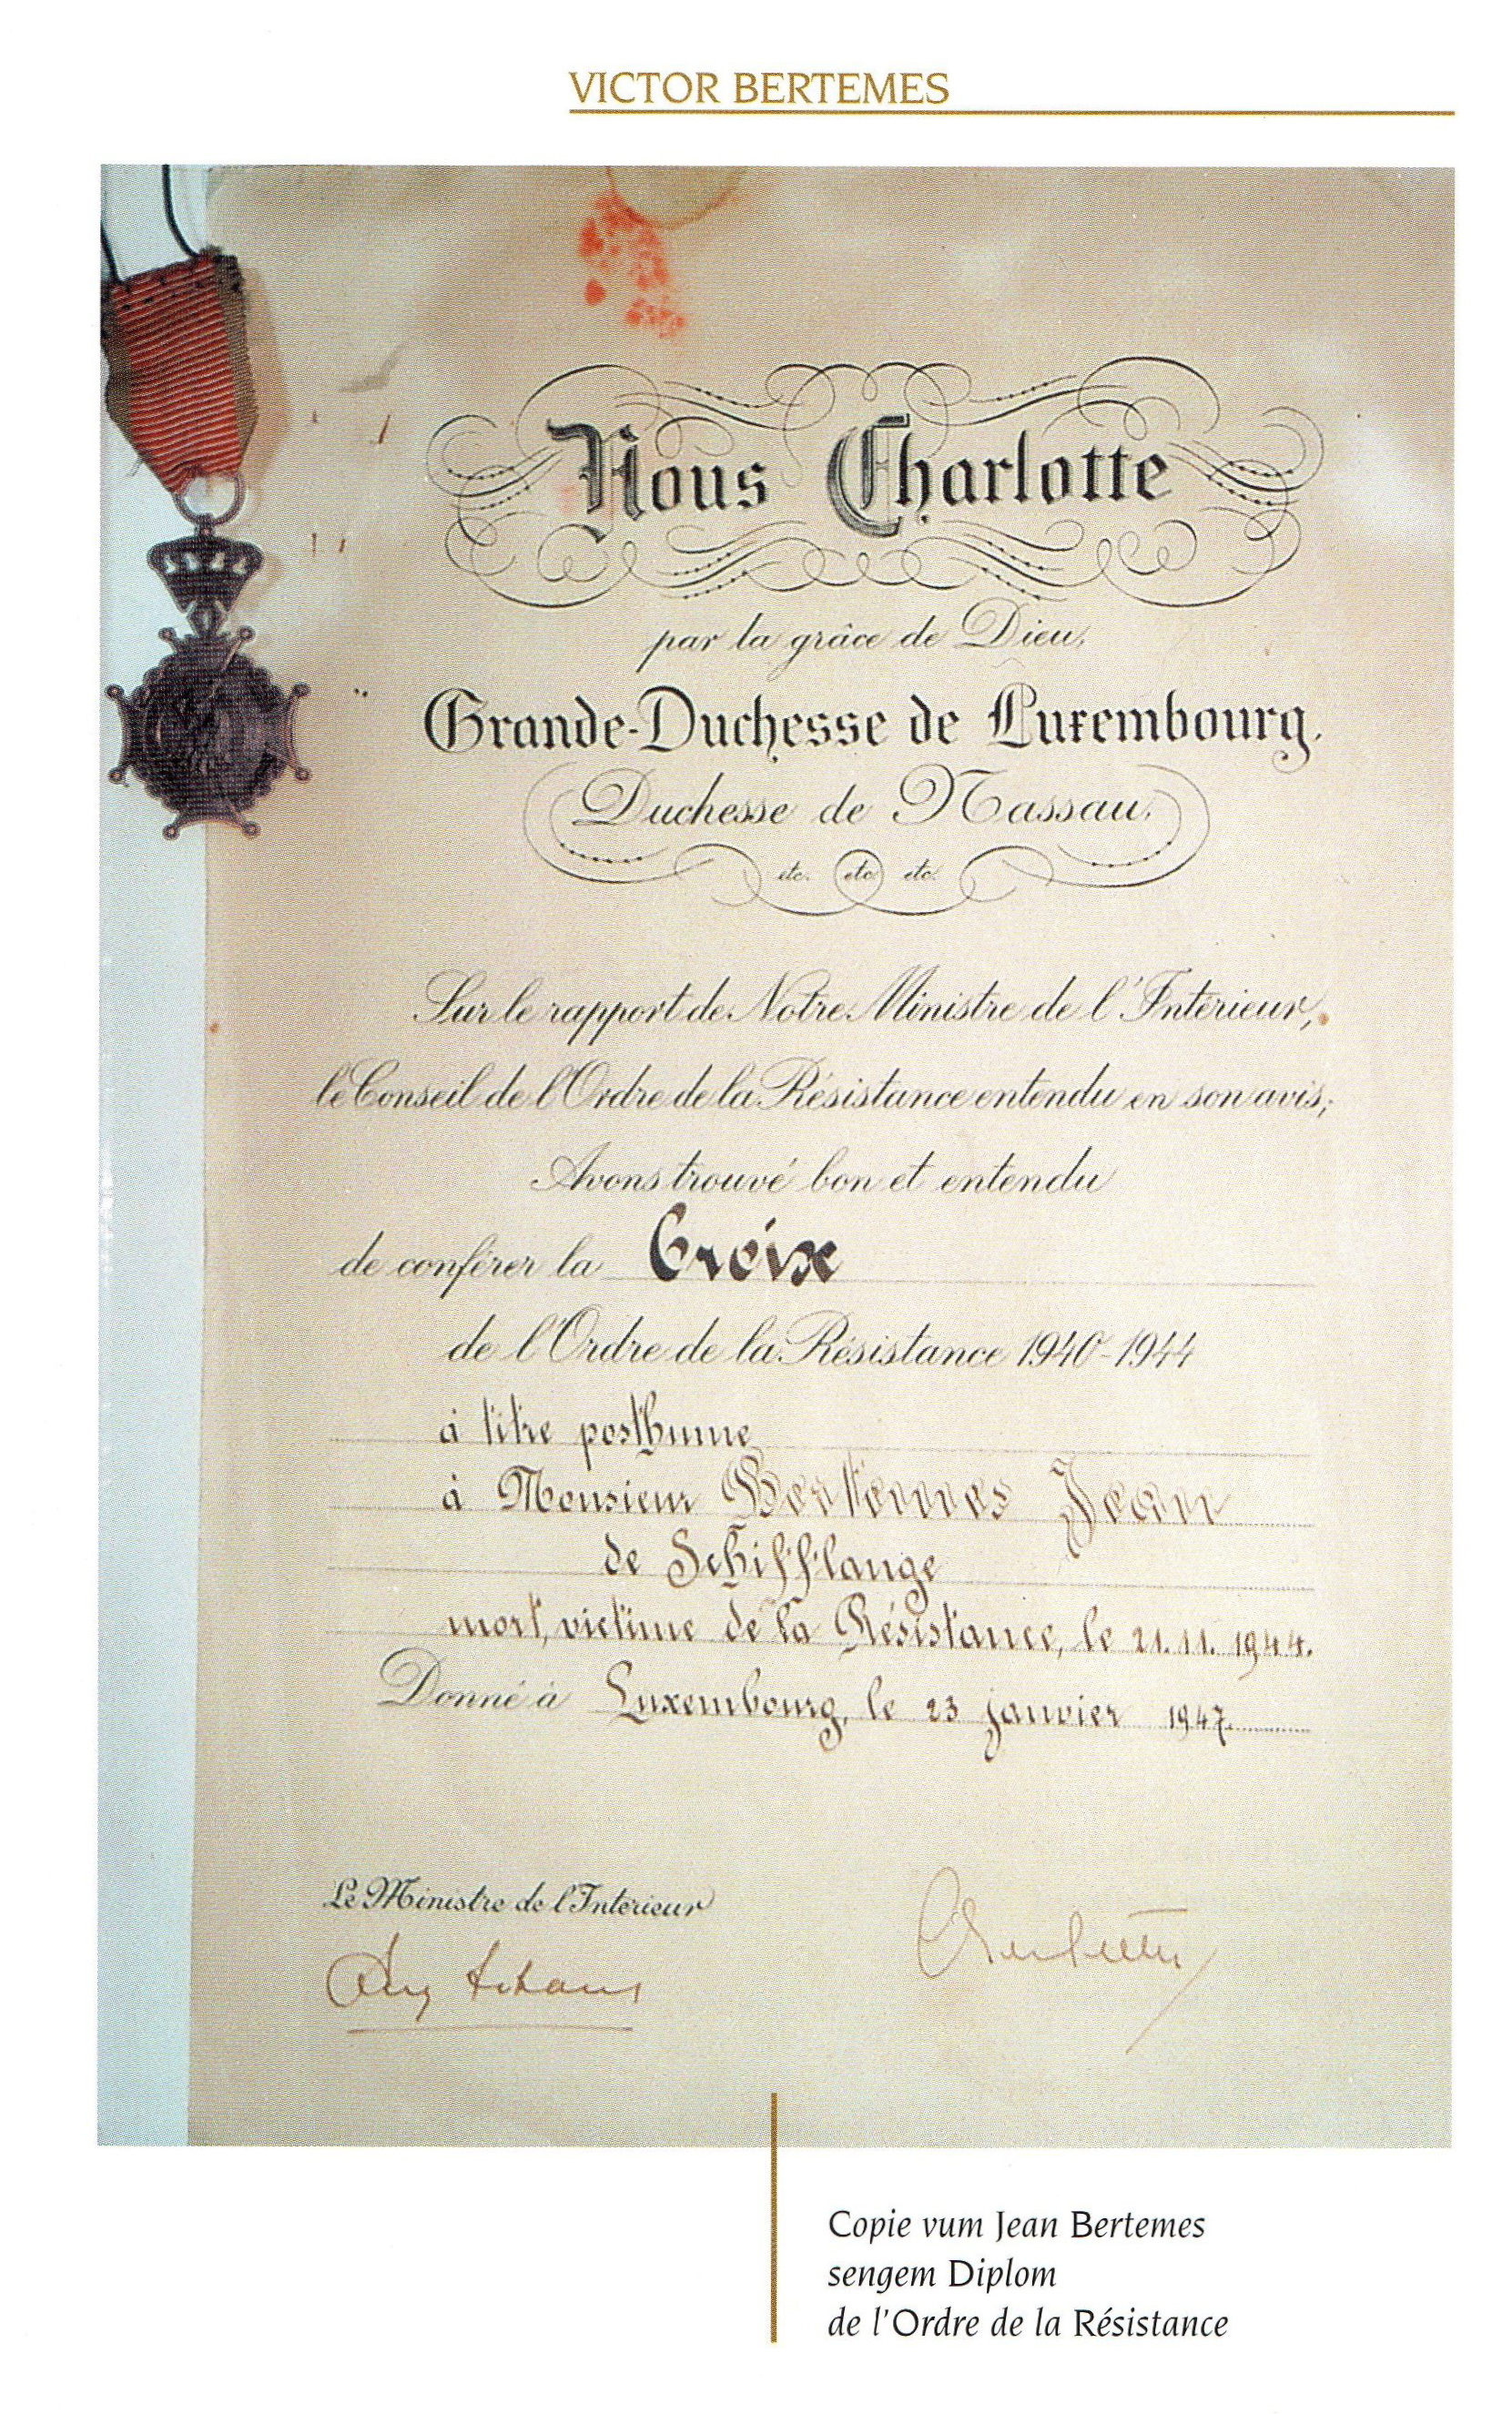 VICTOR BERTEMES
Nous Charlotte
par la grâce de Dieu,
Grande-Duchesse de Luxembourg,
Duchesse de Nassau,
etc. etc. etc.
Sur le rapport de Notre Ministre de l'Intérieur,
le Conseil de l'Ordre de la Résistance entendu en son avis;
Avons trouvé bon et entendu
de conférer la Croix
de l'Ordre de la Résistance 1940-1944
à titre posthume
à Monsieur Bertemes Jean
de Schifflange
mort, victime de la Résistance, le 21.11.1944.
Donné à Luxembourg, le 23 janvier 1947.
Le Ministre de l'Intérieur
Charlotte
Copie vum Jean Bertemes
sengem Diplom
de l'Ordre de la Résistance